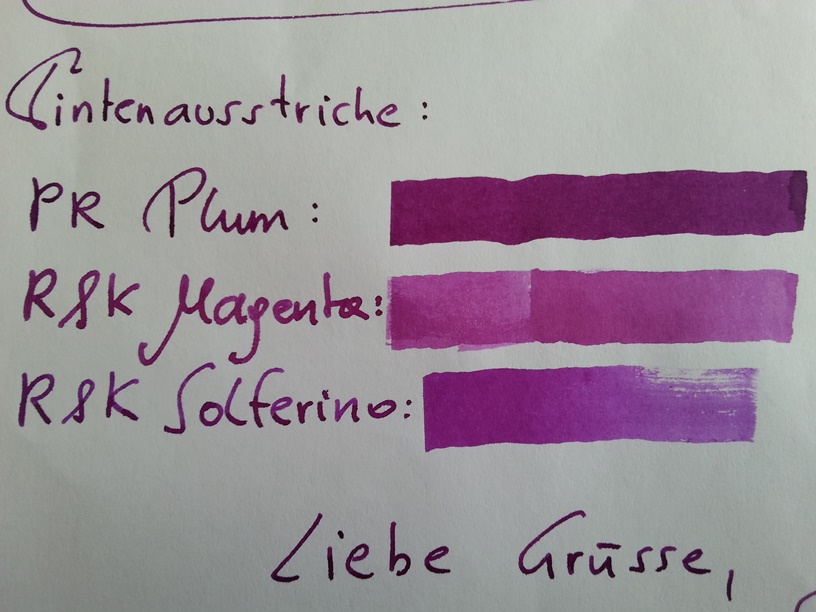 Tintenausstriche:
PR Plum:
R&K Magenta:
R&K Solferino:
Liebe Grüsse,